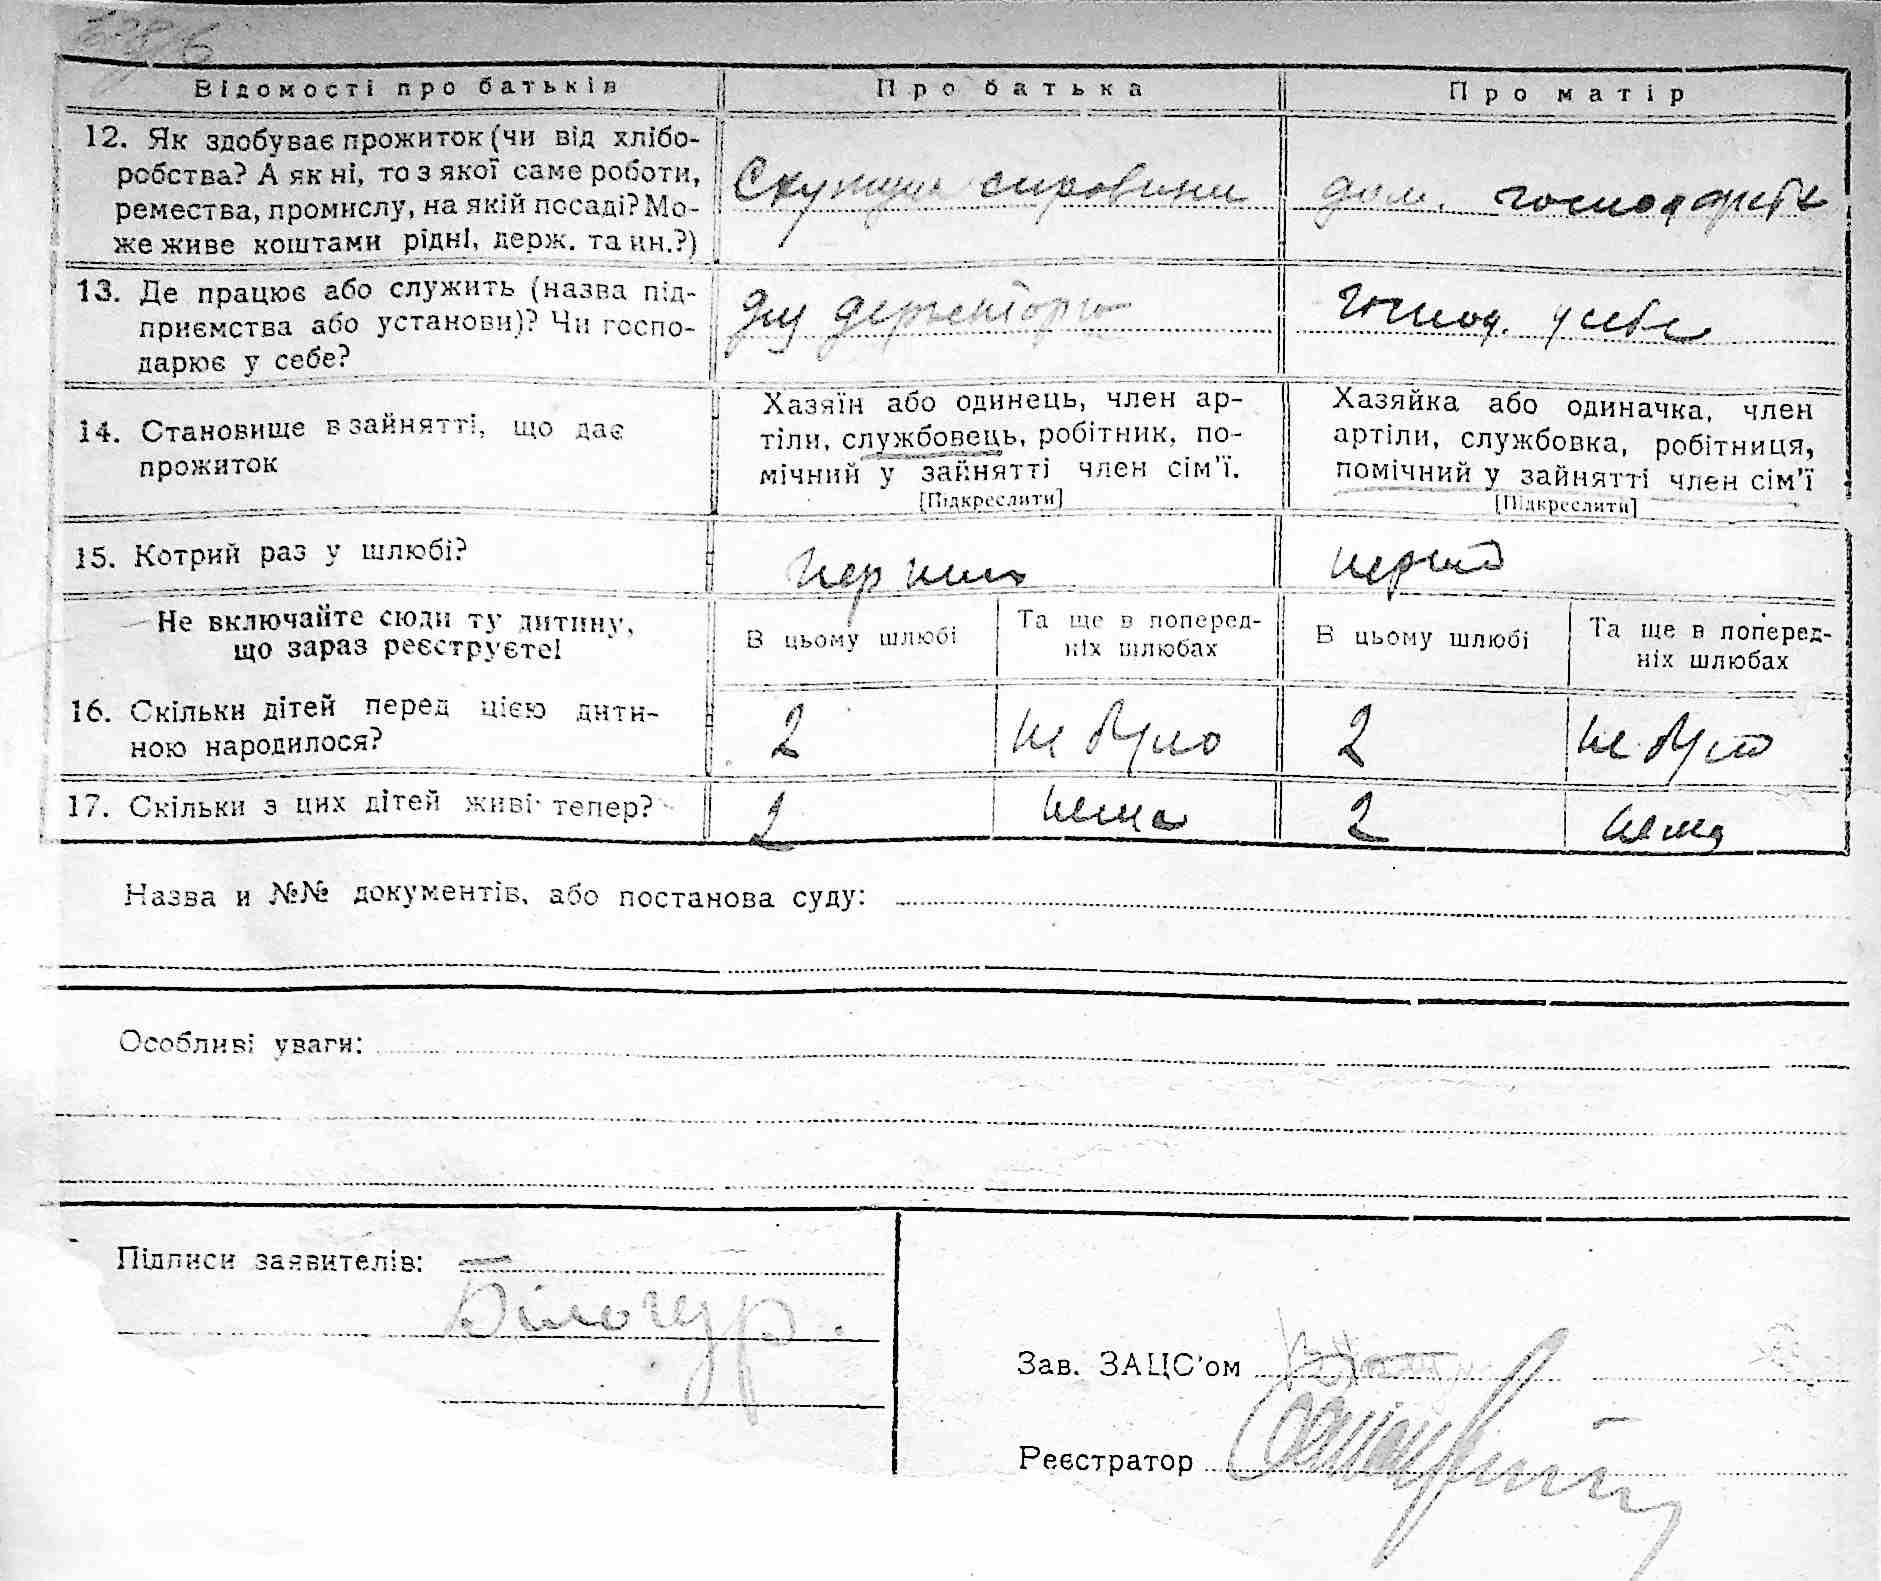 Відомості про батьків Про батька Про матір
12. Як здобуває прожиток (чи від хлібо-
робства? А як ні, то з якої саме роботи,
ремества, промислу, на якій посаді? Мо-
же живе коштами рідні, держ. та ин.?)
сировини
дом. господарка
13. Де працює або служить (назва під-
приємства або установи)? Чи госпо-
дарює у себе?
держконтори
господ. у себе
14. Становище в зайнятті, що дає
прожиток
Хазяїн або одинець, член ар-
тіли, службовець, робітник, по-
мічний у зайнятті член сім'ї.
[Підкреслити]
Хазяйка або одиначка, член
артіли, службовка, робітниця,
помічний у зайнятті член сім'ї
[Підкреслити]
15. Котрий раз у шлюбі?
перший
Не включайте сюди ту дитину,
що зараз реєструєте!
В цьому шлюбі
Та ще в поперед-
ніх шлюбах
В цьому шлюбі
Та ще в поперед-
ніх шлюбах
16. Скільки дітей перед цією дити-
ною народилося?
2 не було 2 не було
17. Скільки з цих дітей живі тепер?
2 нема 2 нема
Назва и №№ документів, або постанова суду:
Особливі уваги:
Підписи заявителів:
Білочур.
Зав. ЗАЦС'ом
Реєстратор